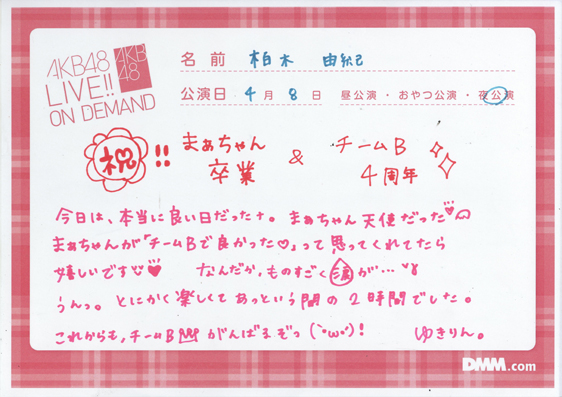 AKB48
LIVE!!
ON DEMAND
AKB
48
名前 柏木 由紀
公演日 4月8日 昼公演・おやつ公演・夜公演
祝!! まぁちゃん卒業 & チームB 4周年
今日は、本当に良い日だったナ。まぁちゃん天使だった♡
まぁちゃんが「チームBで良かった♡」って思ってくれてたら
嬉しいです♥ なんだか、ものすごく涙が…
うんっ。とにかく楽しくてあっという間の2時間でした。
これからも、チームB がんばるぞっ(`・ω・´)! ゆきりん。
DMM.com